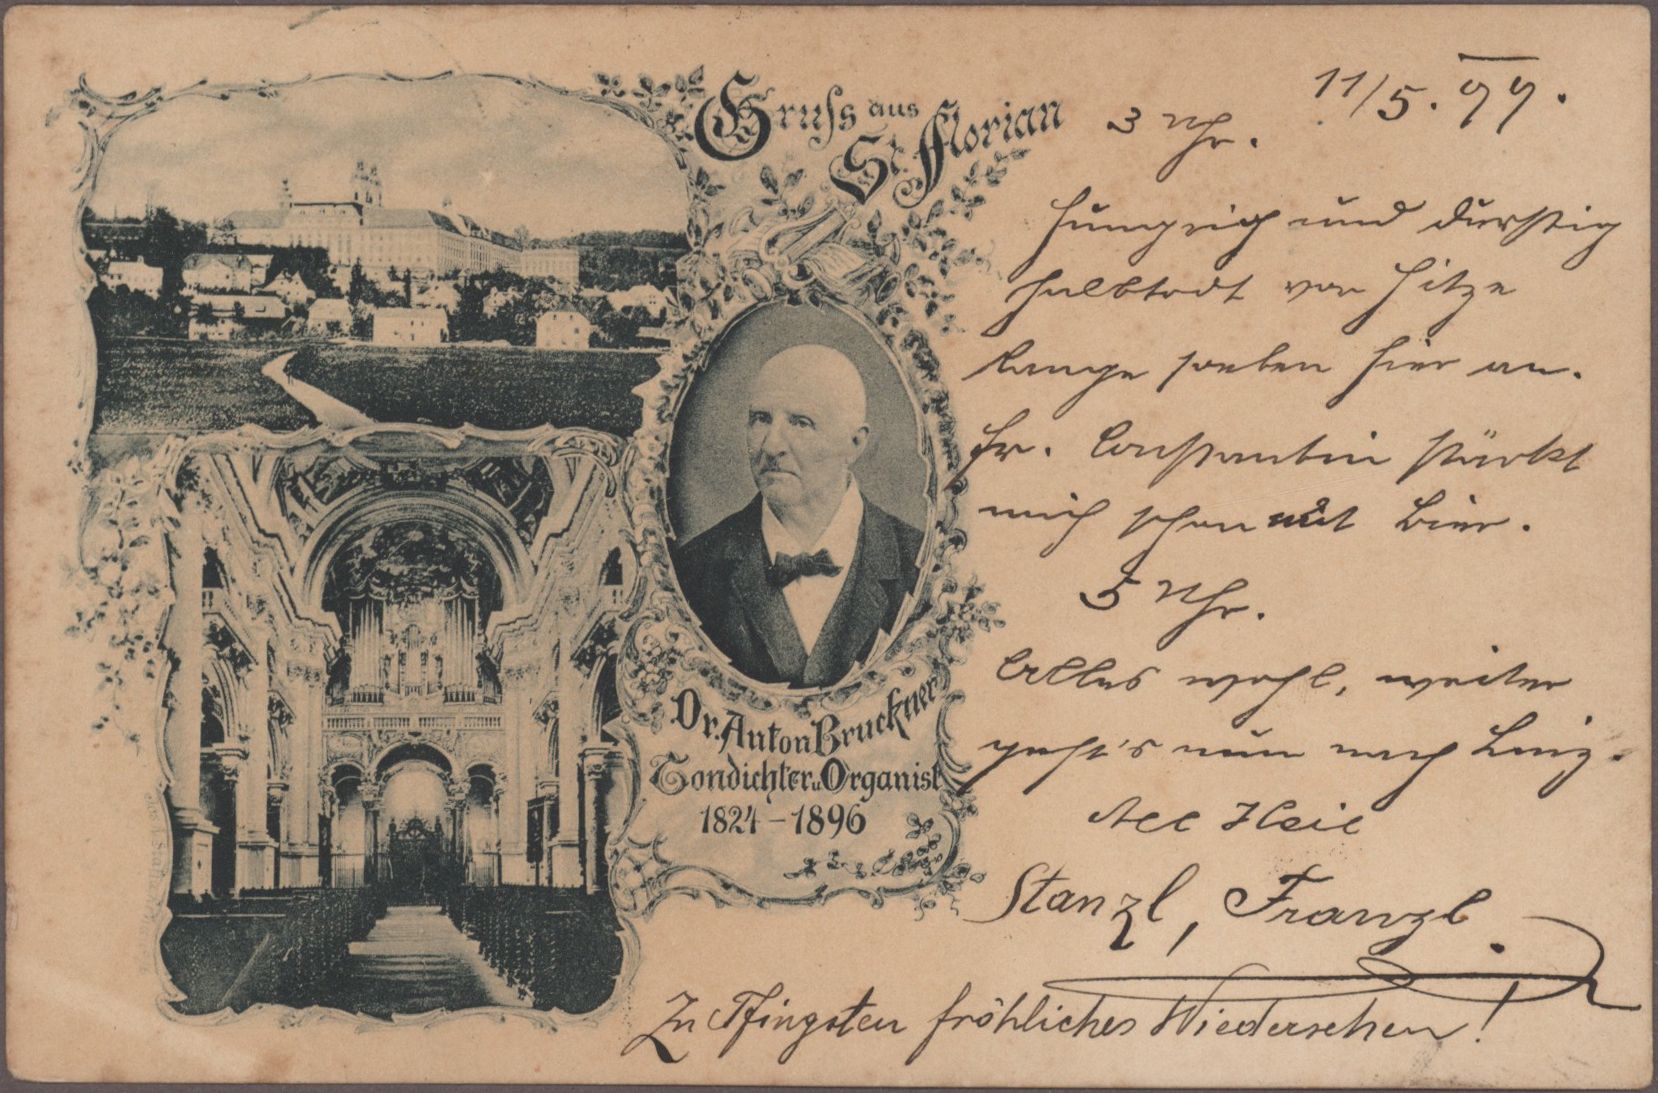 Gruss aus
St. Florian
11/5. 99.
3 Uhr.
Hungrig und durstig
halbtodt vor Hitze
lange soeben hier an.
Fr. Constantin stärkt
mich schon mit Bier.
5 Uhr.
Alles wohl, weiter
geht's nun nach Linz.
All Heil
Stanzl, Franzl.
Zu Pfingsten fröhliches Wiedersehen!
Dr. Anton Bruckner
Tondichter u. Organist
1824 – 1896